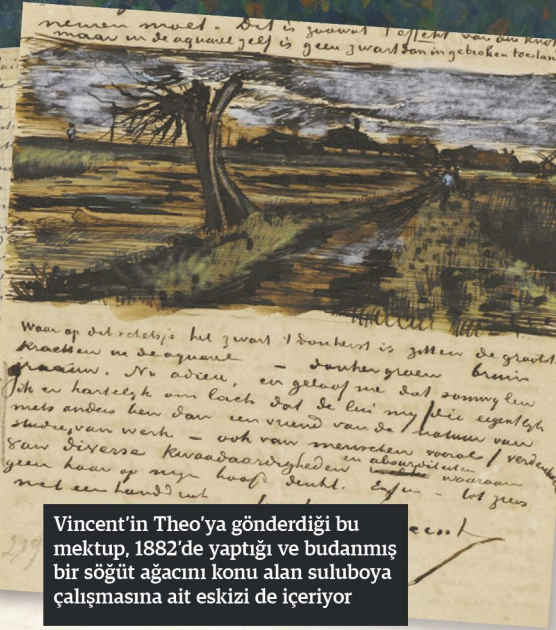 neuren moet. Dit is zoowat 't effekt van den knot
maar in de aquarel zelf is geen zwart dan in gebroken toestand
Waar op dit schetsje het zwart 't donkerst is zitten de grootste
krachten in de aquarel — donkergroen bruin
graauw. Nu adieu, en geloof me dat soms
ik er hartelijk om lach dat de lui mij die eigenlijk
niets anders ben dan een vriend van de natuur van
studie van werk — ook van menschen vooral
van diverse kwaadaardigheden en absurditeiten waaraan
geen haar op mijn hoofd denkt. Enfin — tot ziens
met een handdruk
Vincent
Vincent'in Theo'ya gönderdiği bu
mektup, 1882'de yaptığı ve budanmış
bir söğüt ağacını konu alan suluboya
çalışmasına ait eskizi de içeriyor